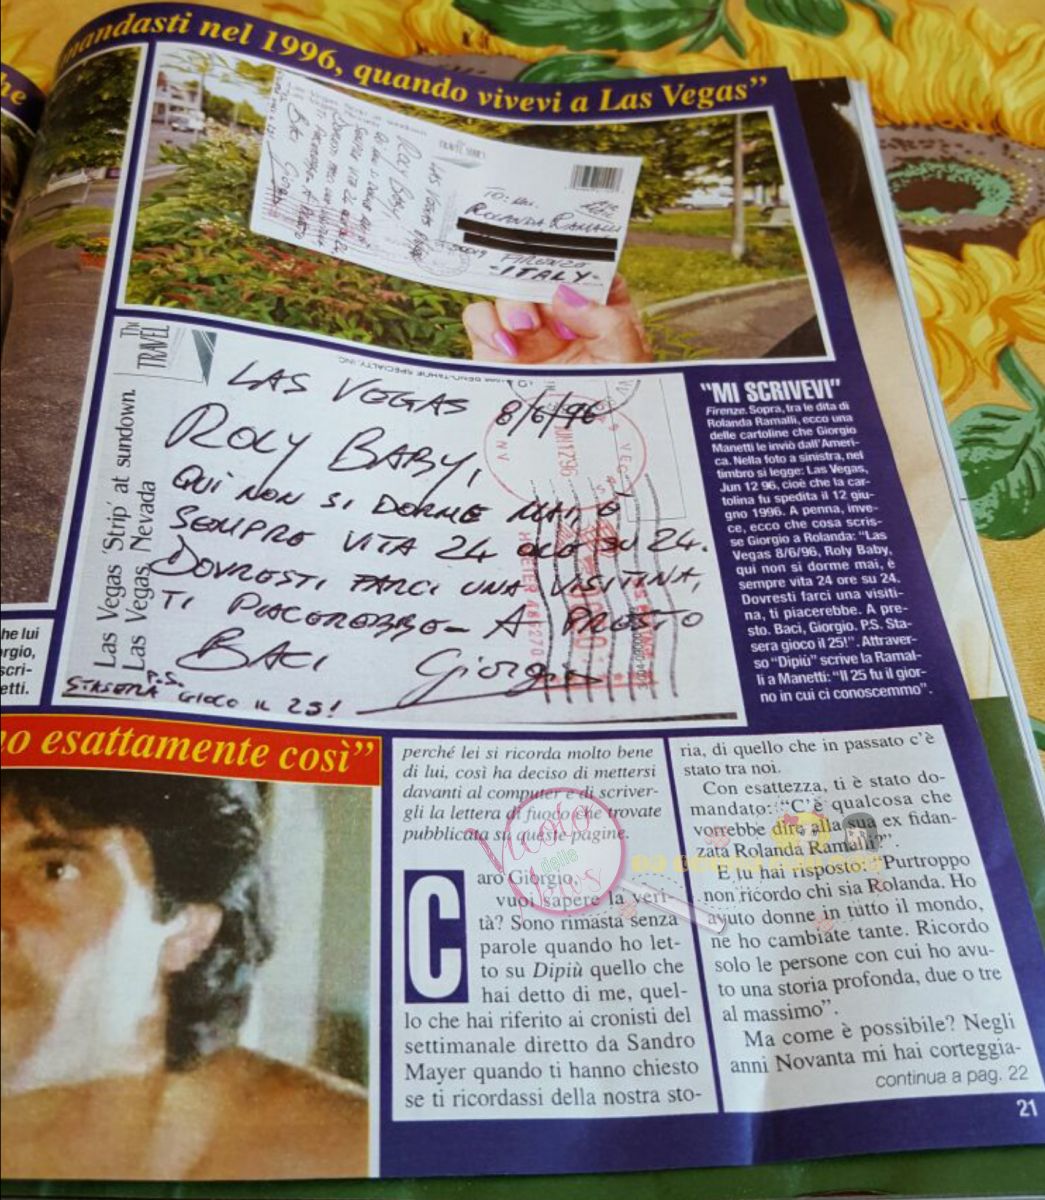 mandasti nel 1996, quando vivevi a Las Vegas”
he
LAS VEGAS 8/6/96
ROLY BABY,
TO:
ROLANDA RAMALLI
FIRENZE
-ITALY-
The
TRAVEL
Las Vegas 'Strip' at sundown.
Las Vegas, Nevada
LAS VEGAS 8/6/96
ROLY BABY,
QUI NON SI DORME MAI, È
SEMPRE VITA 24 ORE SU 24.
DOVRESTI FARCI UNA VISITINA,
TI PIACEREBBE- A PRESTO
BACI Giorgio
P.S.
STASERA GIOCO IL 25!
JUN 12 '96
"MI SCRIVEVI"
Firenze. Sopra, tra le dita di
Rolanda Ramalli, ecco una
delle cartoline che Giorgio
Manetti le inviò dall'Ameri-
ca. Nella foto a sinistra, nel
timbro si legge: Las Vegas,
Jun 12 96, cioè che la car-
tolina fu spedita il 12 giu-
gno 1996. A penna, inve-
ce, ecco che cosa scris-
se Giorgio a Rolanda: “Las
Vegas 8/6/96, Roly Baby,
qui non si dorme mai, è
sempre vita 24 ore su 24.
Dovresti farci una visiti-
na, ti piacerebbe. A pre-
sto. Baci, Giorgio. P.S. Sta-
sera gioco il 25!”. Attraver-
so “Dipiù” scrive la Ramal-
li a Manetti: “Il 25 fu il gior-
no in cui ci conoscemmo”.
he lui
rgio,
scri-
etti.
no esattamente così”
perché lei si ricorda molto bene
di lui, così ha deciso di mettersi
davanti al computer e di scriver-
gli la lettera di fuoco che trovate
pubblicata su queste pagine.
Caro Giorgio,
vuoi sapere la veri-
tà? Sono rimasta senza
parole quando ho let-
to su Dipiù quello che
hai detto di me, quel-
lo che hai riferito ai cronisti del
settimanale diretto da Sandro
Mayer quando ti hanno chiesto
se ti ricordassi della nostra sto-
ria, di quello che in passato c'è
stato tra noi.
Con esattezza, ti è stato do-
mandato: “C'è qualcosa che
vorrebbe dire alla sua ex fidan-
zata Rolanda Ramalli?”.
E tu hai risposto: “Purtroppo
non ricordo chi sia Rolanda. Ho
avuto donne in tutto il mondo,
ne ho cambiate tante. Ricordo
solo le persone con cui ho avu-
to una storia profonda, due o tre
al massimo”.
Ma come è possibile? Negli
anni Novanta mi hai corteggia-
continua a pag. 22
21
Vicolo
delle
News